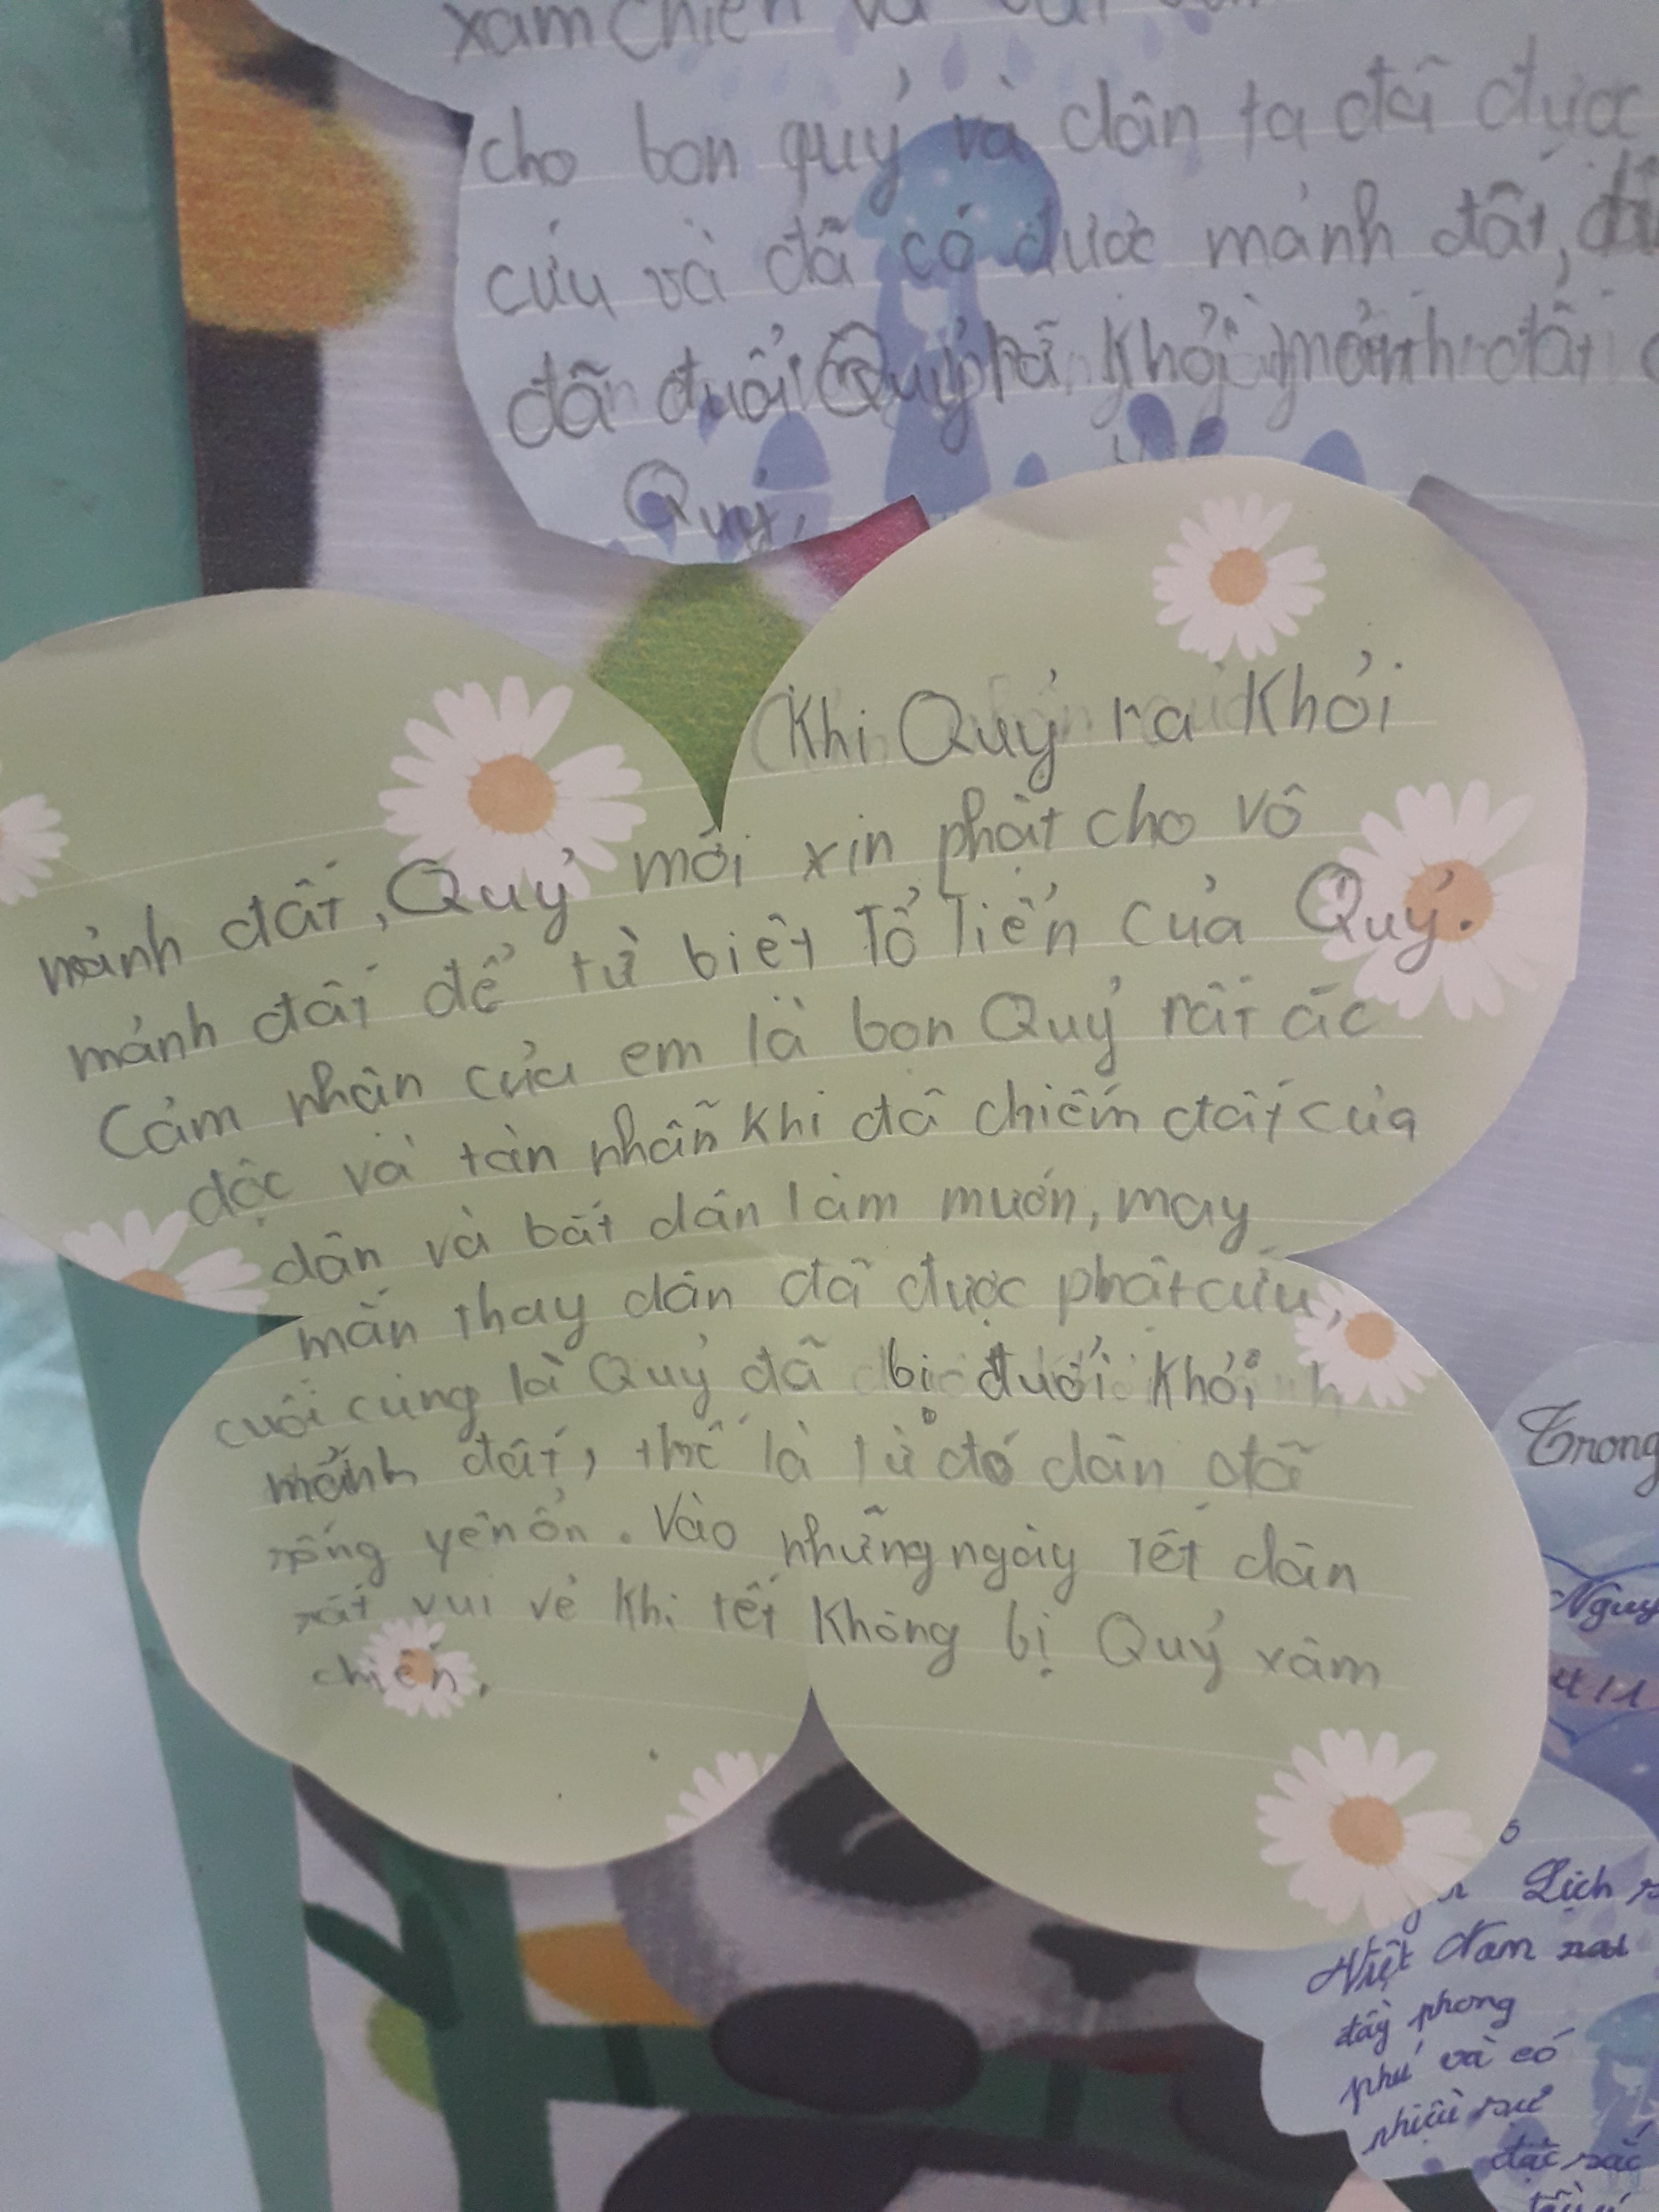 xâm chiến và
cho bọn quỷ và dân ta đã được
cứu và đã có được mảnh đất,
đã đuổi Quỷ khỏi mảnh đất
Quỷ,
Khi Quỷ ra khỏi
mảnh đất, Quỷ mới xin phật cho vô
mảnh đất để từ biệt Tổ Tiên của Quỷ.
Cảm nhận của em là bọn Quỷ rất ác
độc và tàn nhẫn khi đã chiếm đất của
dân và bắt dân làm muớn, may
mắn thay dân đã được phật cứu,
cuối cùng là Quỷ đã bị đuổi khỏi
mảnh đất, thế là từ đó dân đã
sống yên ổn. Vào những ngày tết dân
rất vui vẻ khi tết không bị Quỷ xâm
chiến.
Trong
Nguy
Lịch
Việt Nam
đầy phong
phú và có
nhiều sự
đặc sắc